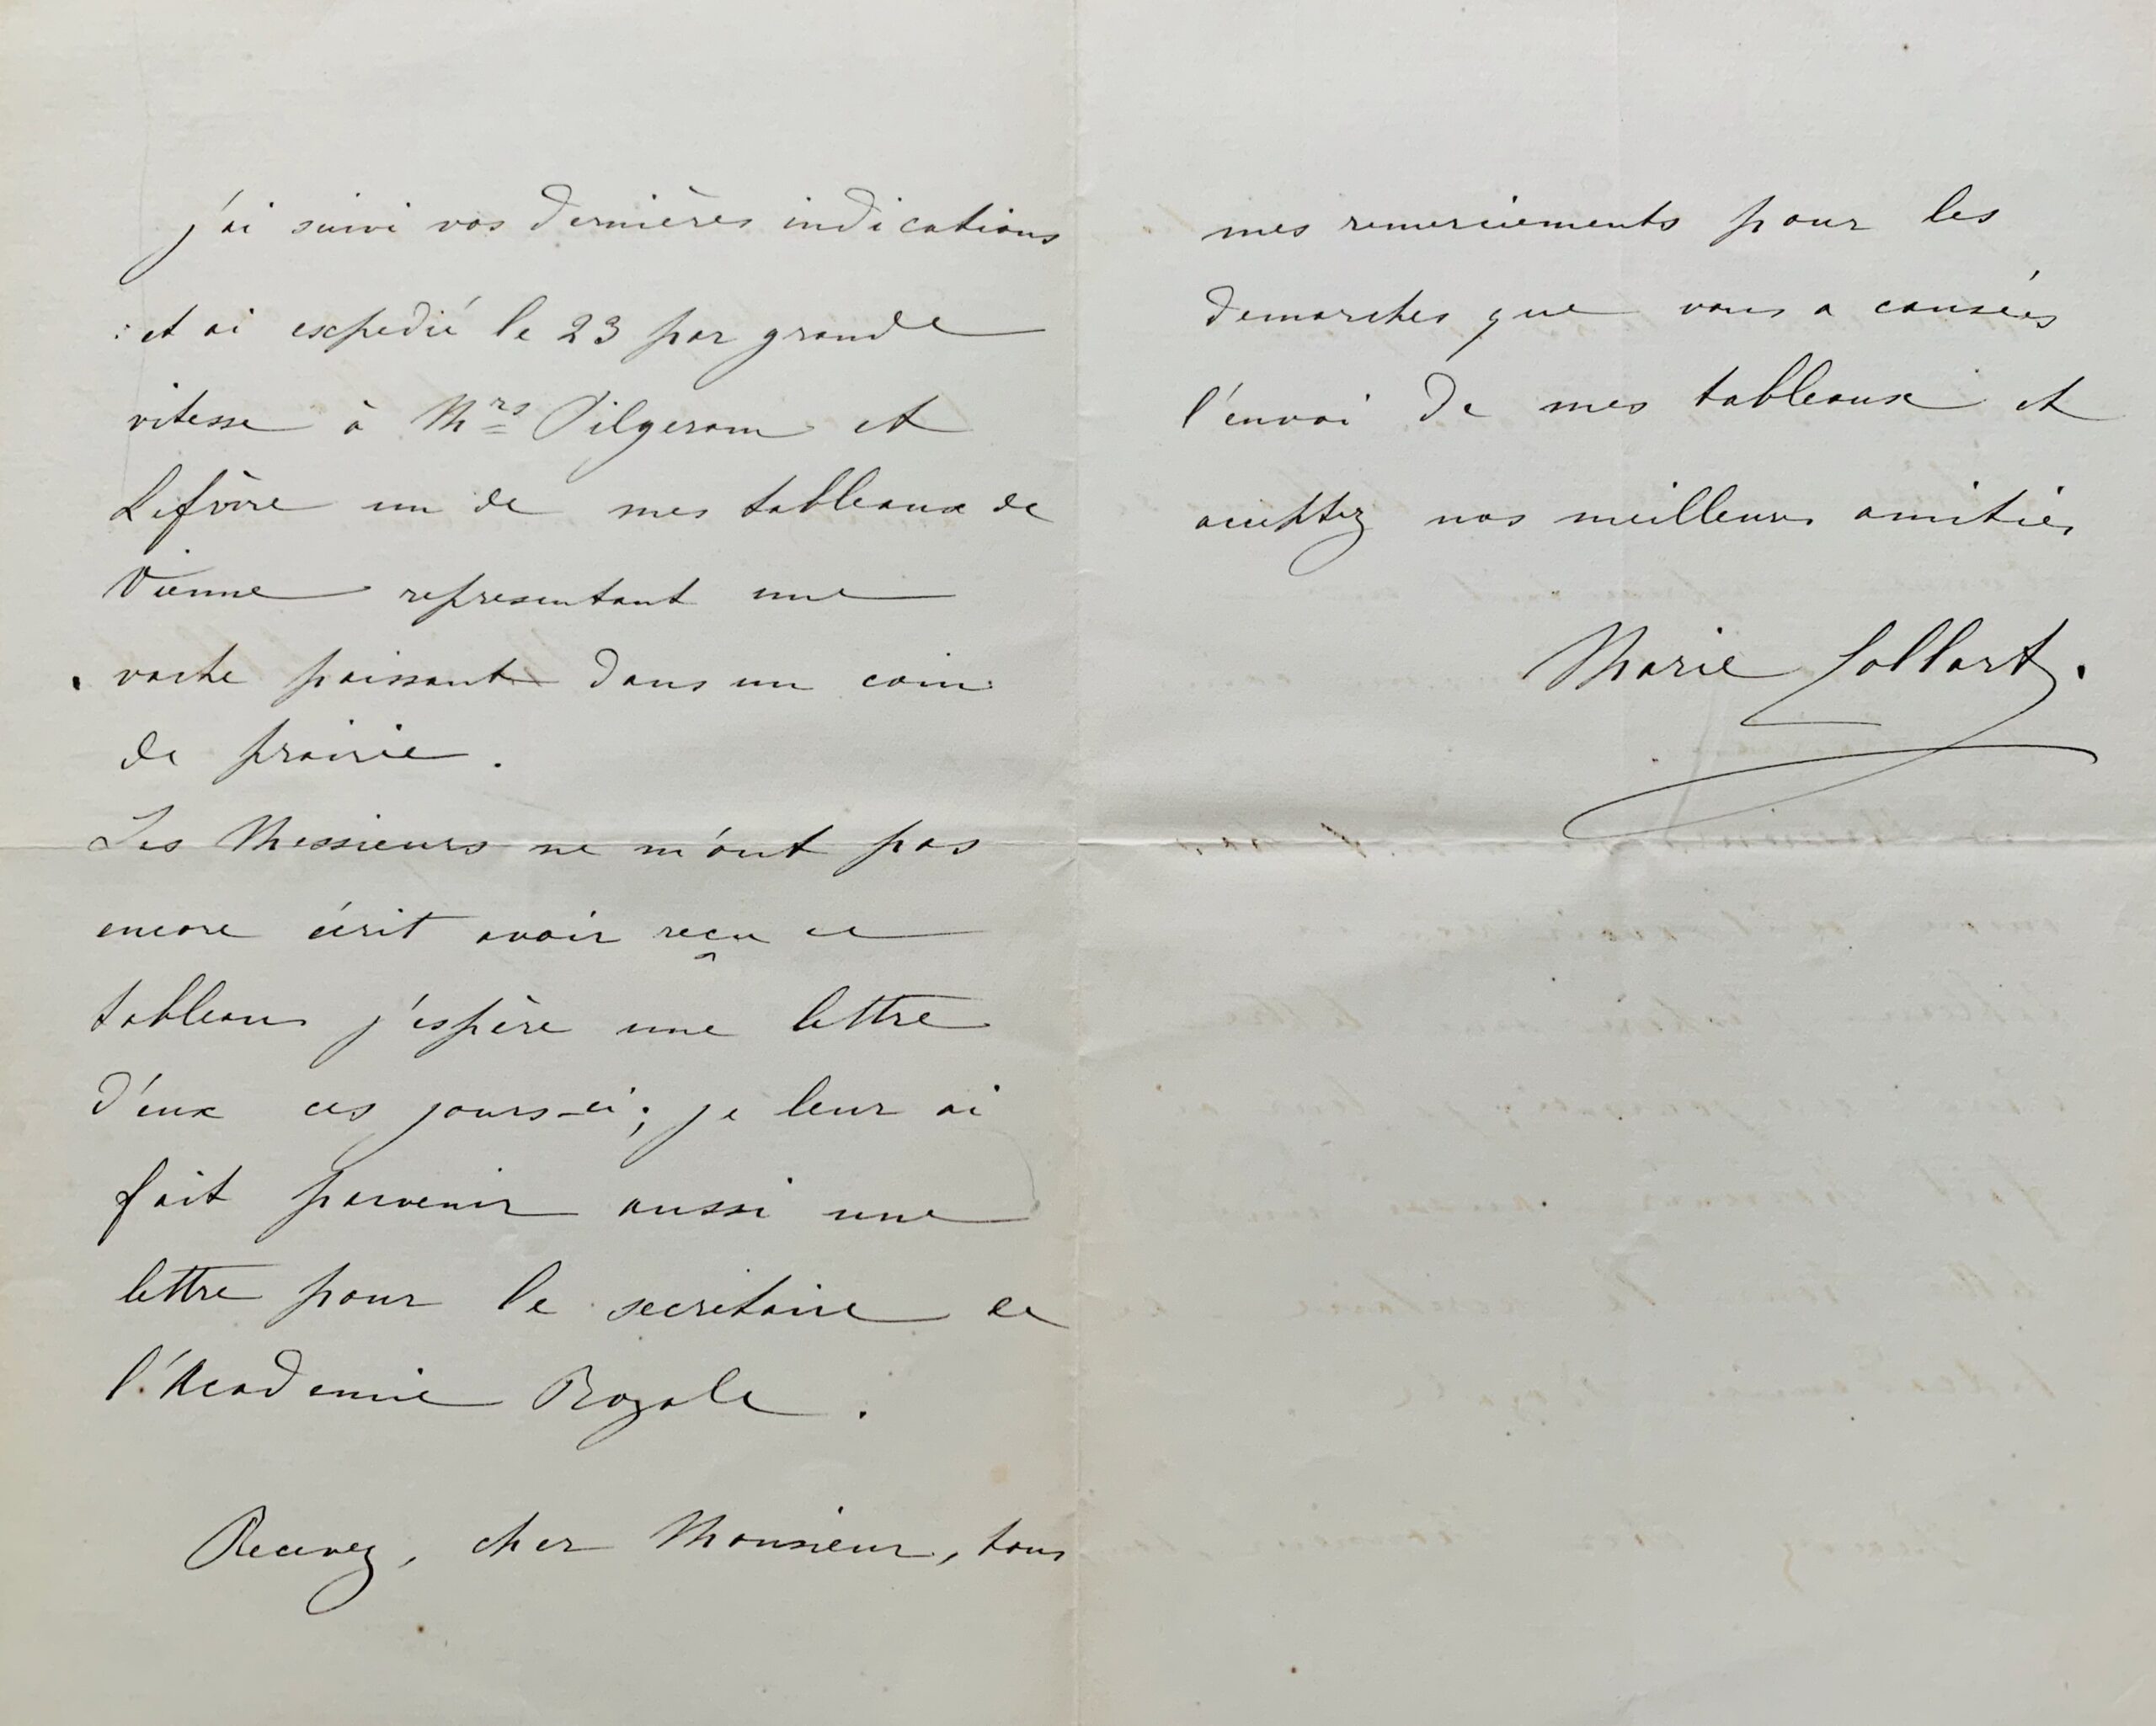 j'ai suivi vos dernières indications
et ai expedié le 23 par grande
vitesse à Mrs Pilgeram et
Lefèvre un de mes tableaux de
Vienne representant une
vache paissant dans un coin
de prairie.
Ces Messieurs ne m'ont pas
encore écrit avoir reçu ce
tableau j'espère une lettre
d'eux ces jours-ci; je leur ai
fait parvenir aussi une
lettre pour le secretaire de
l'Academie Royale.
Recevez, cher Monsieur, tous
mes remerciements pour les
demarches que vous a causées
l'envoi de mes tableaux et
acceptez nos meilleures amitiés
Marie Collart.